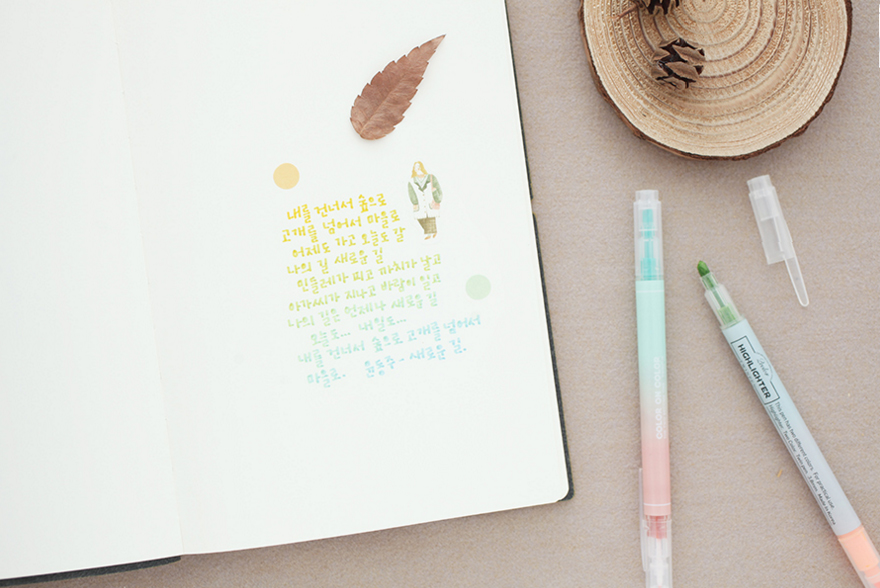 내를 건너서 숲으로
고개를 넘어서 마을로
어제도 가고 오늘도 갈
나의 길 새로운 길
민들레가 피고 까치가 날고
아가씨가 지나고 바람이 일고
나의 길은 언제나 새로운 길
오늘도... 내일도...
내를 건너서 숲으로 고개를 넘어서
마을로. 윤동주 - 새로운 길.
COLOR
COLOR
HIGHLIGHTER
This pen has two different colors. For practical use